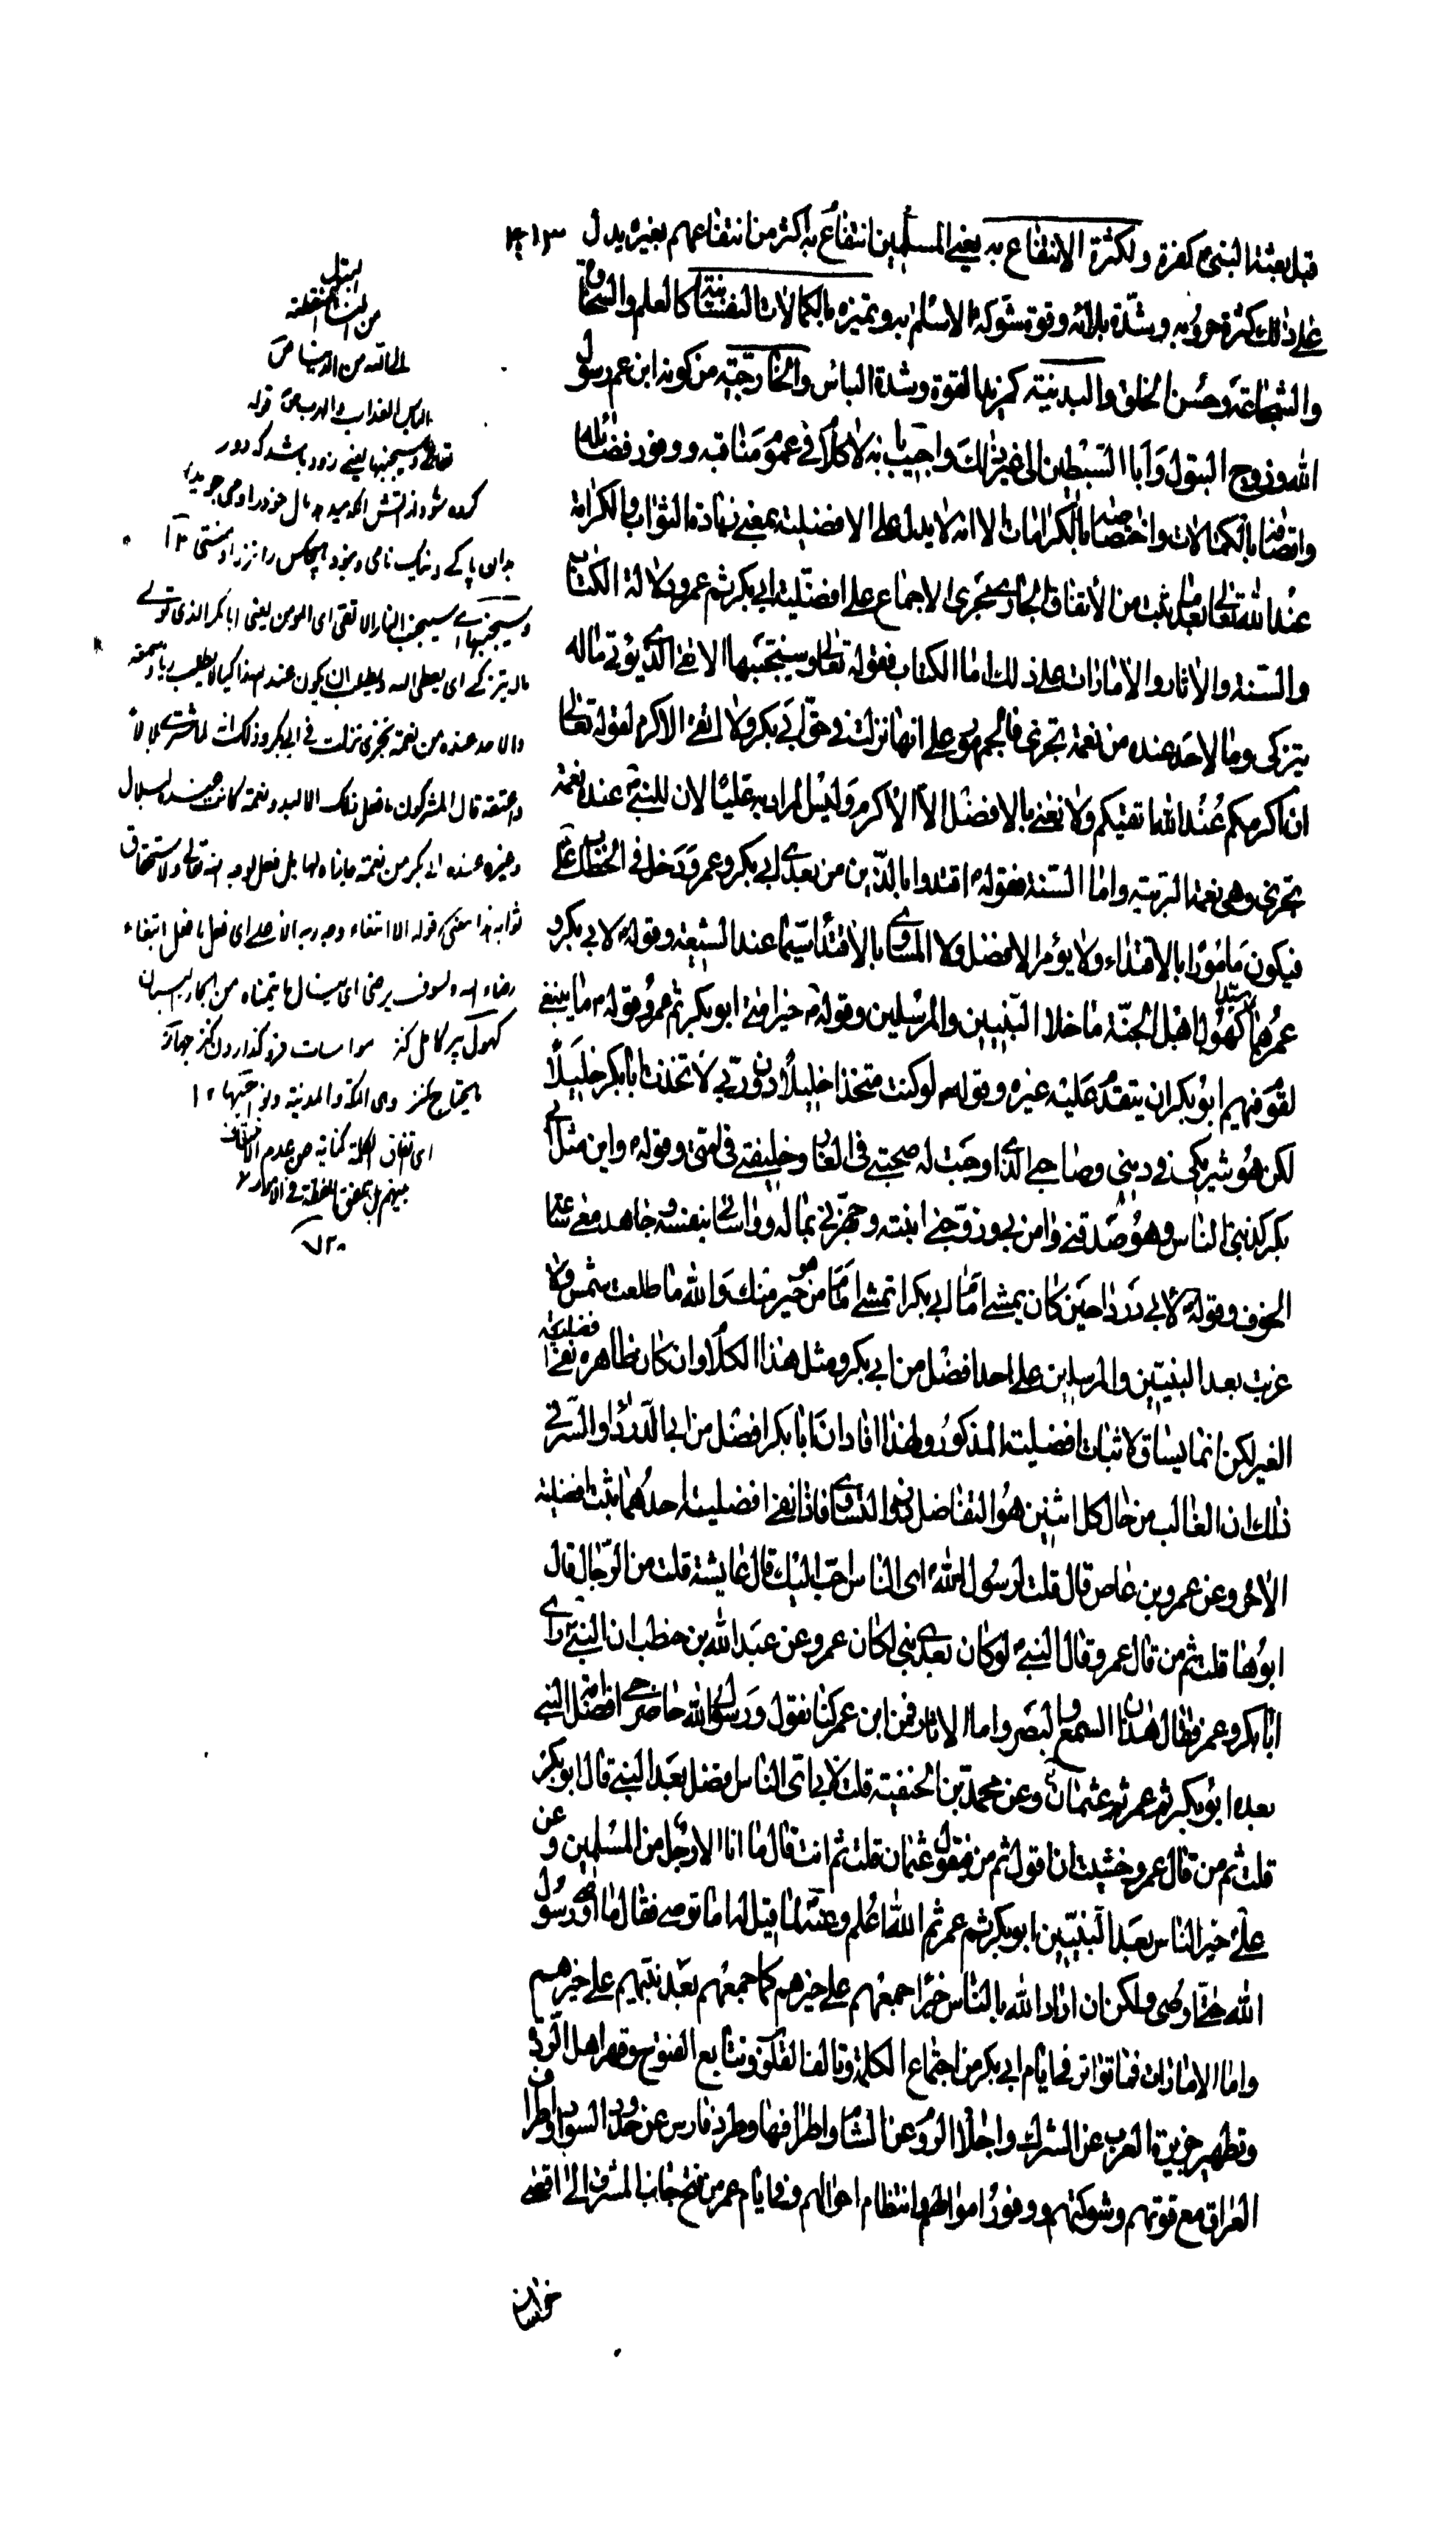 قبل بعثة النبى ص كفرة ولكثرة الانتفاع به يعنى المسلمين انتفاع به اكثر من انتفاعهم بغيره يدل
على ذلك كثرة حروبه وشدة بلائه وقوة شوكة الاسلام به وتميزه بالكمالات النفسانية كالعلم والسخاوة
والشجاعة وحسن الخلق والبدنية كمزيد القوة وشدة الباس والخارجية من كونه ابن عم رسول
الله وزوج البتول وابا السبطين الى غير ذلك واجيب بانه لا كلام فى عموم مناقبه ووفور فضائله
واتصافه بالكمالات واختصاصه بالكرامات الا انه لا يدل على الافضلية بمعنى زيادة الثواب والكرامة
عند الله تعالى بعد ما ثبت من الاتفاق الجارى مجرى الاجماع على افضلية ابى بكر ثم عمر ودلالة الكتاب
والسنة والاثار والامارات على ذلك اما الكتاب فقوله تعالى وسيجنبها الاتقى الذى يؤتى ماله
يتزكى وما لاحد عنده من نعمة تجزى فالجمهور على انها نزلت فى حق ابى بكر والاتقى الاكرم لقوله تعالى
ان اكرمكم عند الله اتقيكم ولا نعنى بالافضل الا الاكرم وليس المراد به عليا لان للنبى عنده نعمة
تجزى وهى نعمة التربية واما السنة فقوله اقتدوا بالذين من بعدى ابى بكر وعمر ودخل فى الخطاب على
فيكون مامورا بالاقتداء ولا يؤمر الافضل ولا المساوى بالاقتداء سيما عند الشيعة وقوله لابى بكر و
عمر هما سيدا كهول اهل الجنة ما خلا النبيين والمرسلين وقوله خير امتى ابو بكر ثم عمر وقوله ما ينبغى
لقوم فيهم ابو بكر ان يتقدم عليه غيره وقوله لو كنت متخذا خليلا دون ربى لاتخذت ابا بكر خليلا
لكن هو شريكى فى دينى وصاحبى الذى اوجبت له صحبتى فى الغار وخليفتى فى امتى وقوله واين مثل ابى
بكر كذبنى الناس وهو صدقنى وامن بى وزوجنى ابنته وجهزنى بماله وواسانى بنفسه وجاهد معى ساعة
الخوف وقوله لابى دردا حين كان يمشى امام ابى بكر اتمشى امام من هو خير منك والله ما طلعت شمس ولا
غربت بعد النبيين والمرسلين على احد افضل من ابى بكر ومثل هذا الكلام وان كان ظاهره نفى افضلية
الغير لكن انما يساق لاثبات افضلية المذكور ولهذا افاد ان ابا بكر افضل من ابى الدرداء والسر فى
ذلك ان الغالب من حال كل اثنين هو التفاضل دون التساوى فاذا نفى افضلية احدهما ثبت افضلية
الاخر وعن عمرو بن عاص قال قلت لرسول الله اى الناس احب اليك قال عايشة قلت من الرجال قال
ابوها قلت ثم من قال عمر وقال النبى لو كان بعدى نبى لكان عمر وعن عبد الله بن حنطب ان النبى راى
ابا بكر وعمر فقال هذان السمع والبصر واما الاثار فمن ابن عمر كنا نقول ورسول الله حاضر حى افضل امة النبى
بعده ابو بكر ثم عمر ثم عثمان وعن محمد بن الحنفية قلت لابى اى الناس افضل بعد النبى قال ابو بكر
قلت ثم من قال عمر وخشيت ان اقول ثم من فيقول عثمان قلت ثم انت قال ما انا الا رجل من المسلمين وعن
على خير الناس بعد النبيين ابو بكر ثم عمر ثم الله اعلم وعنه لما قيل له اما توصى فقال ما اوصى رسول
الله حتى اوصى ولكن ان اراد الله بالناس خيرا جمعهم على خيرهم كما جمعهم بعد نبيهم على خيرهم
واما الامارات فما تواتر فى ايام ابى بكر من اجتماع الكلمة وتالف القلوب وتتابع الفتوح وقهر اهل الردة
وتطهير جزيرة العرب عن الشرك واجلاء الروم عن الشام واطرافها وطرد فارس عن حدود السواد واطراف
العراق مع قوتهم وشوكتهم ووفور اموالهم وانتظام احوالهم وفى ايام عمر من فتح جانب المشرق الى اقصى
خراسان
البتل
من
الباس العذاب والحرب ص قوله
تعالى وسيجنبها يعنى زود باشد كه دور
كرده شود از آتش
وسيجنبها اى سيجنب النار الاتقى اى المومن يعنى ابا بكر الذى يؤتى
ماله يتزكى اى يعطى ليطلب ان يكون عند الله زاكيا لا يطلب رياء وسمعة
وما لاحد عنده من نعمة تجزى نزلت فى ابى بكر وذلك انه لما اشترى بلالا
واعتقه قال المشركون ما فعل ذلك الا ليد ونعمة كانت عنده لبلال
رضاء الله ولسوف يرضى اى
ما يحتاج
اى اتفاق الكلمة كناية عن عدم الاختلاف
بينهم